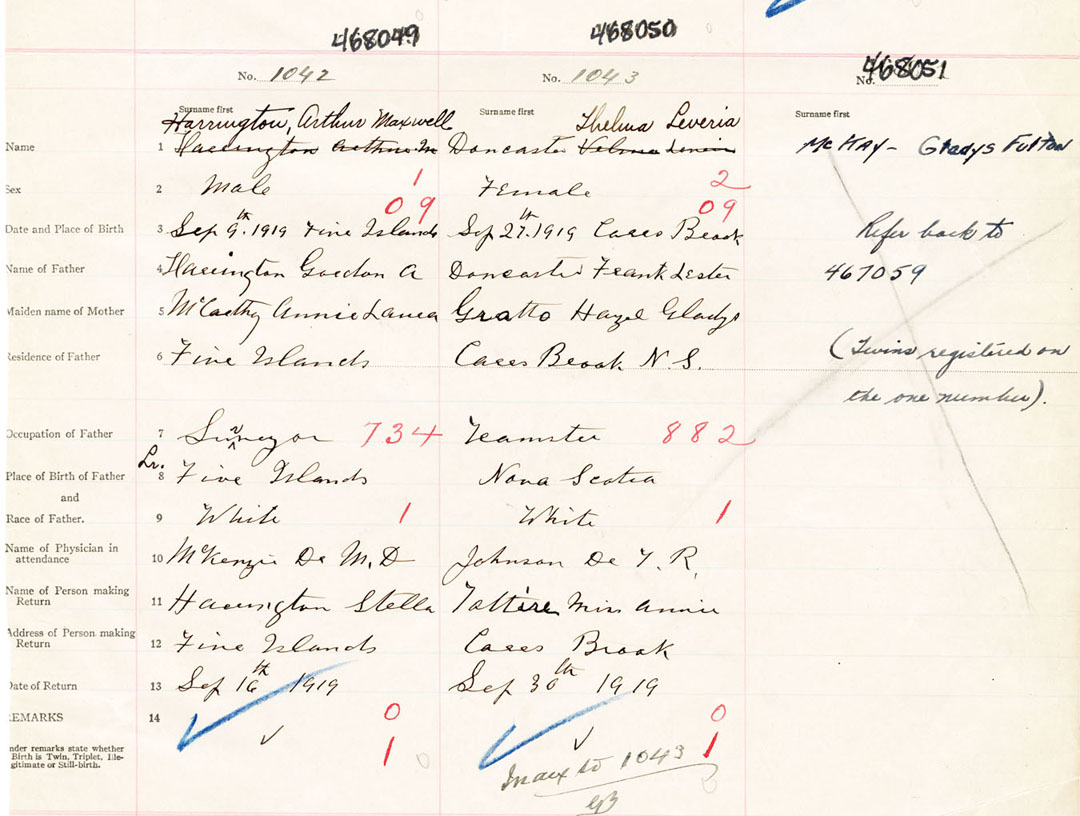 468049 468050 468051
No. 1042 No. 1043 No.
Surname first Surname first Surname first
Harrington, Arthur Maxwell Thelma Leveria
Name 1 Harrington Arthur M Doncaster McKay - Gladys Fulton
Sex 2 Male 1 Female 2
09 09
Date and Place of Birth 3 Sep 9th. 1919 Five Islands Sep 27th. 1919 Carrs Brook Refer back to
Name of Father 4 Harrington Gordon A Doncaster Frank Lester 467059
Maiden name of Mother 5 McCarthy Annie Laura Gratto Hazel Gladys
Residence of Father 6 Five Islands Carrs Brook N.S. (Twins registered on
the one number).
Occupation of Father 7 Surveyor 734 Teamster 882
Lr.
Place of Birth of Father 8 Five Islands Nova Scotia
and
Race of Father. 9 White 1 White 1
Name of Physician in
attendance 10 McKenzie Dr M.D Johnson Dr T. R.
Name of Person making
Return 11 Harrington Stella Miss Annie
Address of Person making
Return 12 Five Islands Carrs Brook
Date of Return 13 Sep 16th 1919 Sep 30th 1919
REMARKS 14 0 0
Under remarks state whether
Birth is Twin, Triplet, Ille-
gitimate or Still-birth. 1 0 1 0
Index to 1043